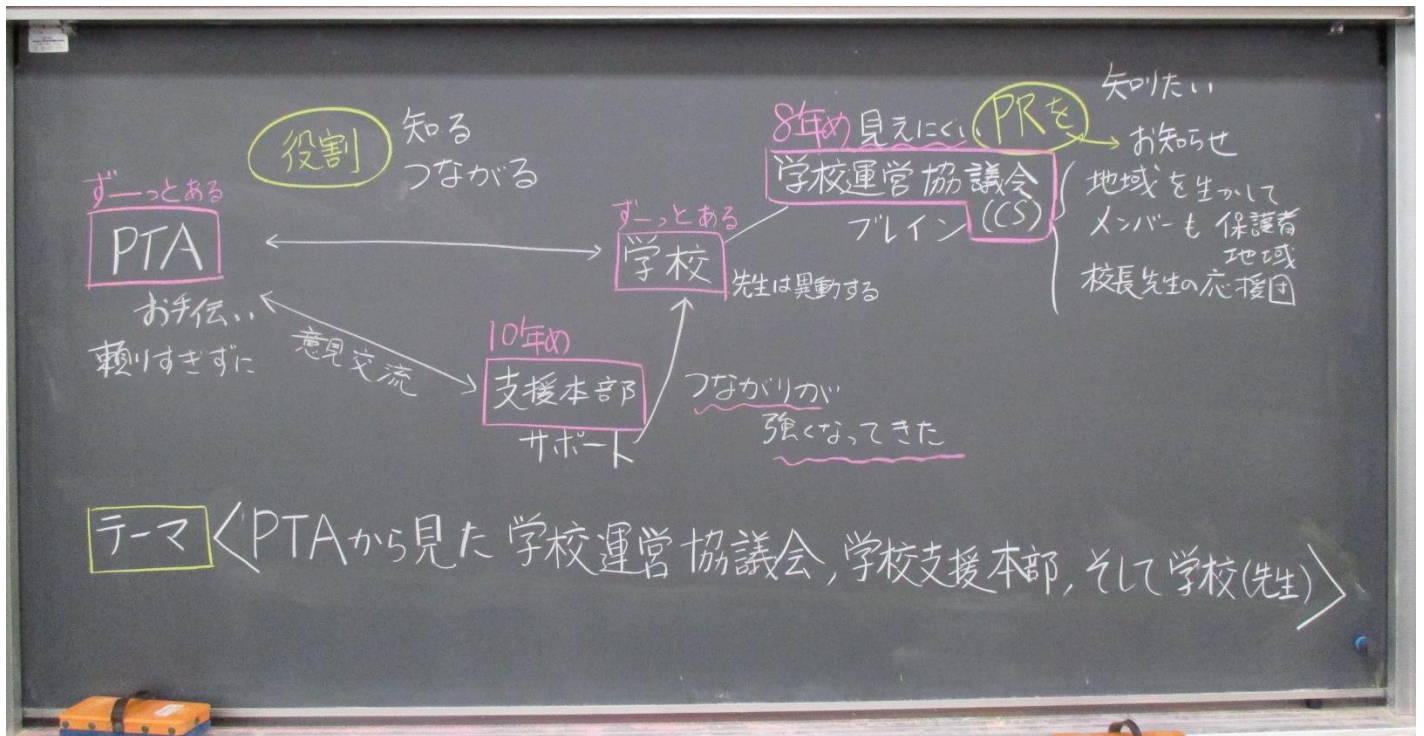 役割
知る
つながる
ずーっとある
PTA
お手伝い
頼りすぎずに
意見交流
10年め
支援本部
サポート
ずーっとある
学校
先生は異動する
つながりが
強くなってきた
8年め 見えにくい PRを
学校運営協議会
(CS)
ブレイン
知りたい
お知らせ
地域を生かして
メンバーも 保護者
地域
校長先生の応援団
テーマ 〈PTAから見た学校運営協議会,学校支援本部,そして学校(先生)〉